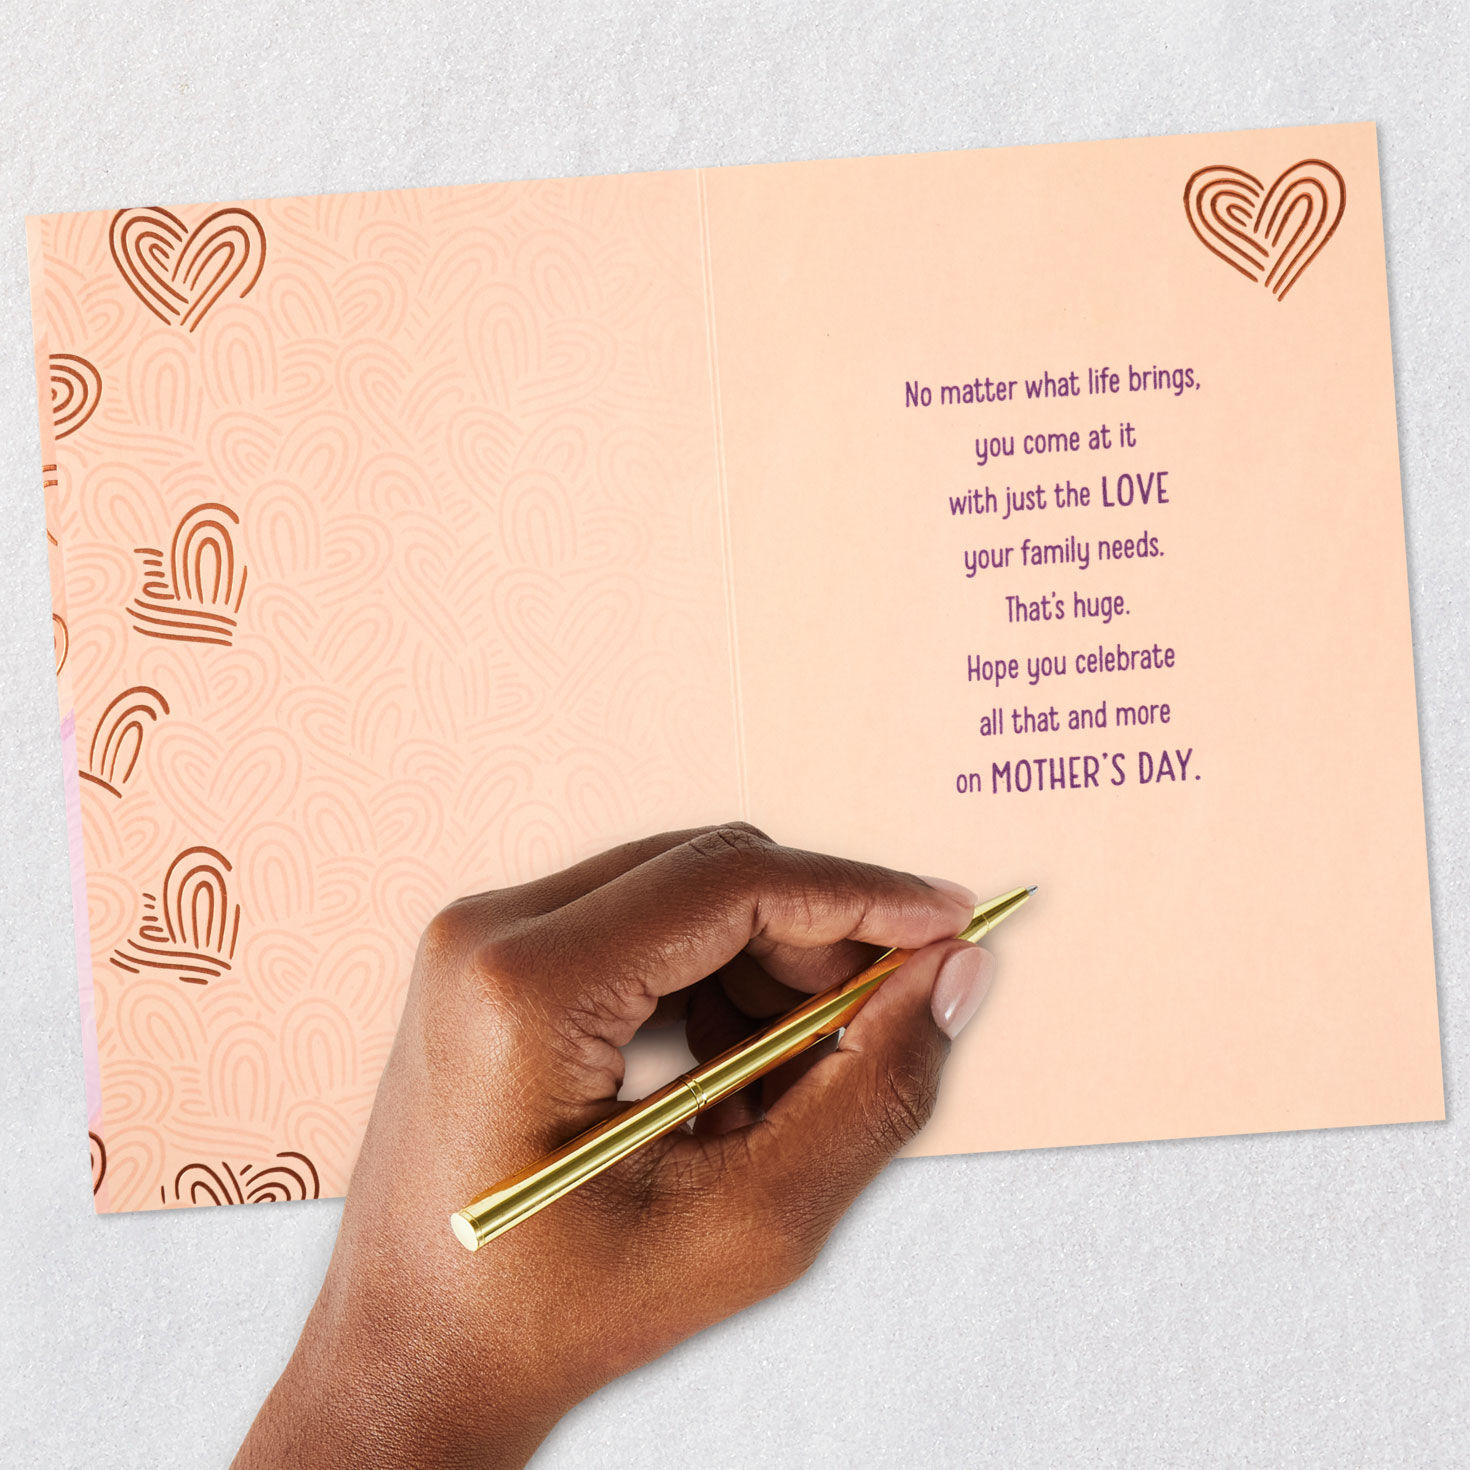 No matter what life brings,
you come at it
with just the LOVE
your family needs.
That's huge.
Hope you celebrate
all that and more
on MOTHER'S DAY.